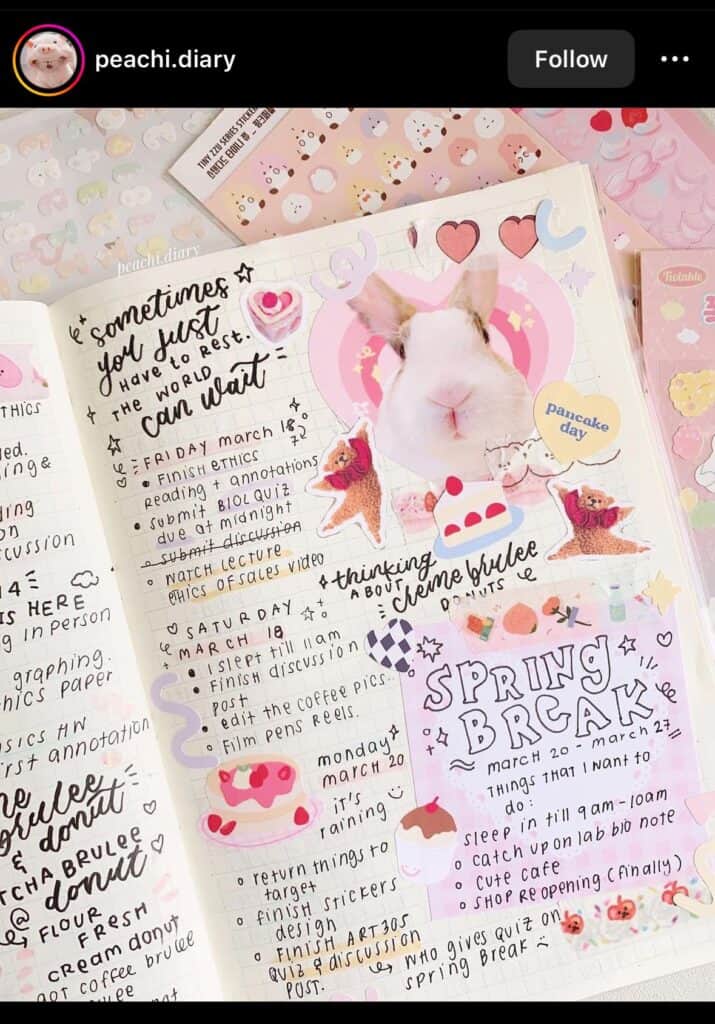 peachi.diary
Follow
TINY ZZU SERIES STICKER
peachi.diary
sometimes
you just
HAVE TO REST.
THE WORLD
can wait
FRIDAY march 18
7
FINISH ETHICS
Reading + annotations
SUBMIT BIOL QUIZ
due at midnight
submit discussion
WATCH LECTURE
ETHICS OF SALES VIDEO
SATURDAY
MARCH 18
I SLEPT till 11am
FINISH discussion
POST
edit the coffee pics...
FILM PENS REELS.
monday
march 20
it's
raining
return things to
target
finish stickers
design
FINISH ART305
QUIZ & discussion
POST.
WHO GIVES QUIZ ON
spring Break
pancake
day
thinking
ABOUT
creme brulee
DONUTS
SPRING
BREAK
march 20 - march 27
THINGS THAT I WANT to
do:
sleep in till 9am-10am
catch up on lab bio note
cute cafe
SHOP REOPENING (finally)
Twotable
THICS
ing &
cussion
14
IS HERE
g in Person
graphing.
hics paper
irst annotation
brulee
& donut
TCHA BRULEE
@ donut
FLOUR
FRESH
cream donut
got coffee brulee